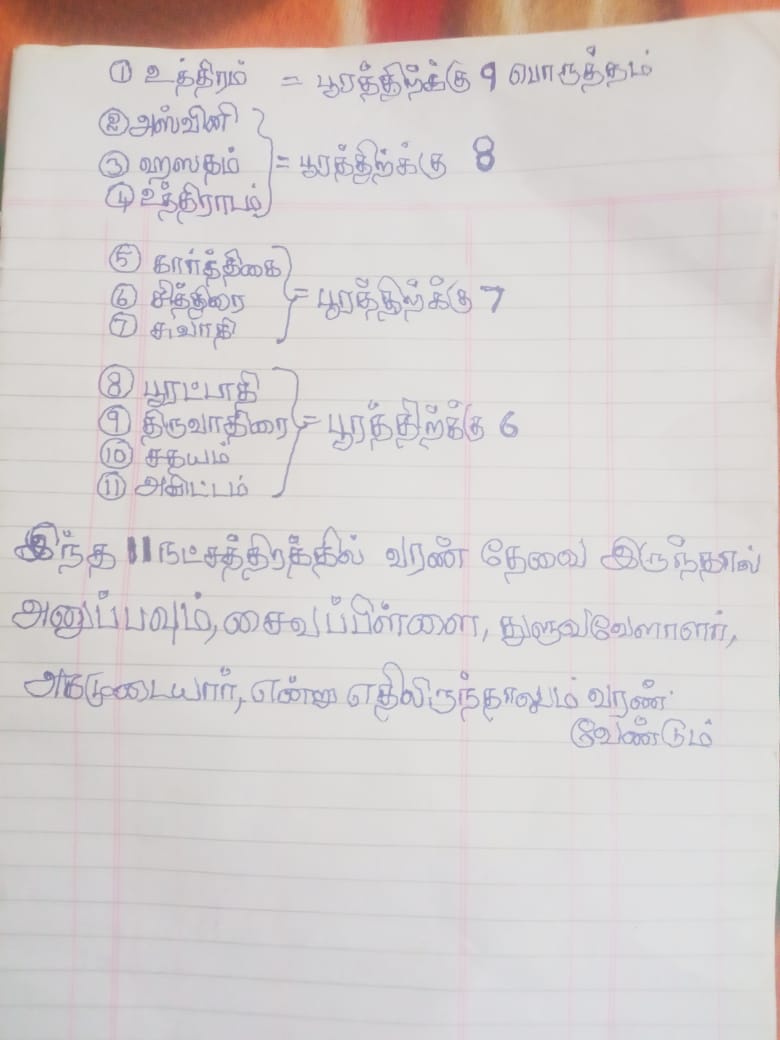 ① உத்திரம் = பூரத்திற்க்கு 9 பொருத்தம்
② அஸ்வினி
③ ஹஸதம் = பூரத்திற்க்கு 8
④ உத்திராடம்
⑤ கார்த்திகை
⑥ சித்திரை = பூரத்திற்க்கு 7
⑦ சுவாதி
⑧ பூரட்டாதி
⑨ திருவாதிரை = பூரத்திற்க்கு 6
⑩ சதயம்
⑪ அவிட்டம்
இந்த 11 நட்சத்திரத்தில் வரண் தேவை இருந்தால்
அனுப்பவும், சைவப்பிள்ளை, துளுவவேளாளர்,
அகமுடையார், என்று எதிலிருந்தாலும் வரண்
வேண்டும்